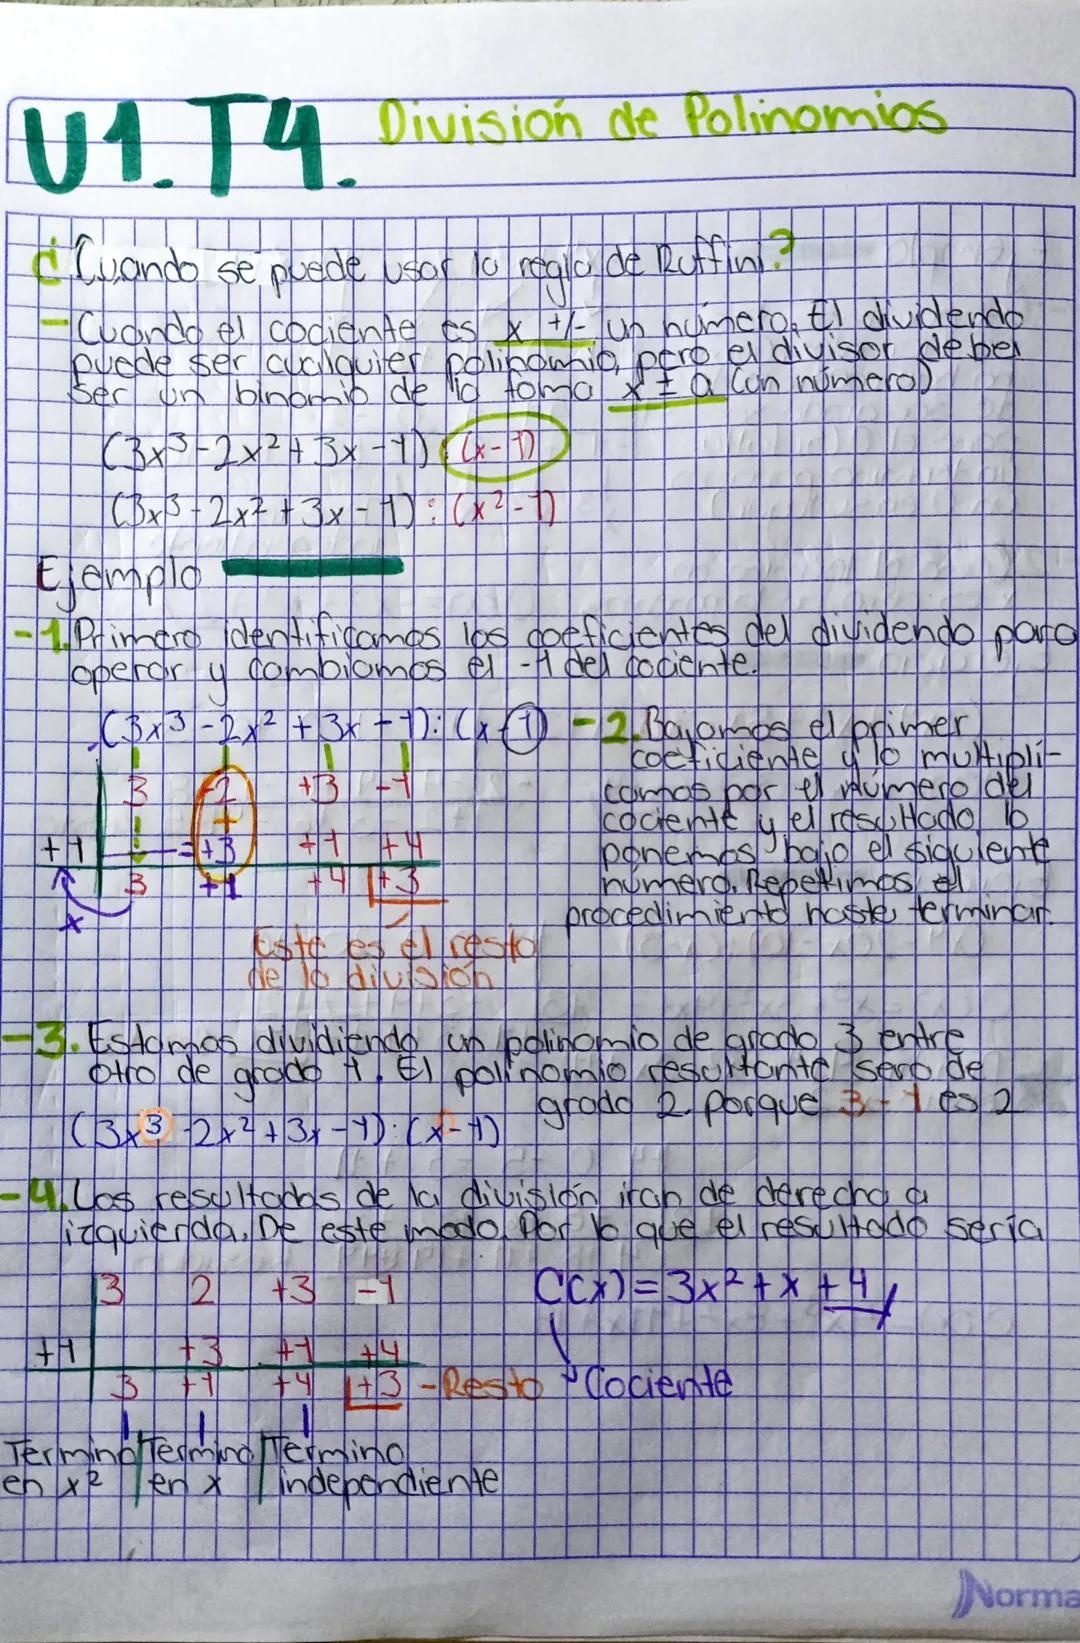 U1.T4. División de Polinomios
¿Cuando se puede usar la regla de Ruffini?
-Cuando el cociente es x +/- un número. El dividendo
puede ser cualquier polinomio, pero el divisor debe
ser un binomio de la forma x ± a (un número)
(3x³-2x²+3x-1):(x-1)
(3x³-2x²+3x-1):(x²-1)
Ejemplo
-1. Primero identificamos los coeficientes del dividendo para
operar y cambiamos el -1 del cociente.
(3x³-2x²+3x-1):(x-1)
3 -2 +3 -1
+
+1 = +3 +1 +4
3 +1 +4 +3
x
Este es el resto
de la división
-2. Bajamos el primer
coeficiente y lo multipli-
camos por el número del
cociente y el resultado lo
ponemos bajo el siguiente
número. Repetimos el
procedimiento hasta terminar.
-3. Estamos dividiendo un polinomio de grado 3 entre
otro de grado 1. El polinomio resultante sera de
grado 2 porque 3-1 es 2
(3x³-2x²+3x-1):(x-1)
-4. Los resultados de la división iran de derecha a
izquierda. De este modo. Por lo que el resultado seria
3 2 +3 -1
+1 +3 +1 +4
3 +1 +4 +3 -Resto
C(x)=3x²+x+4
Cociente
Termino Termino Termino
en x² en x independiente
Norma